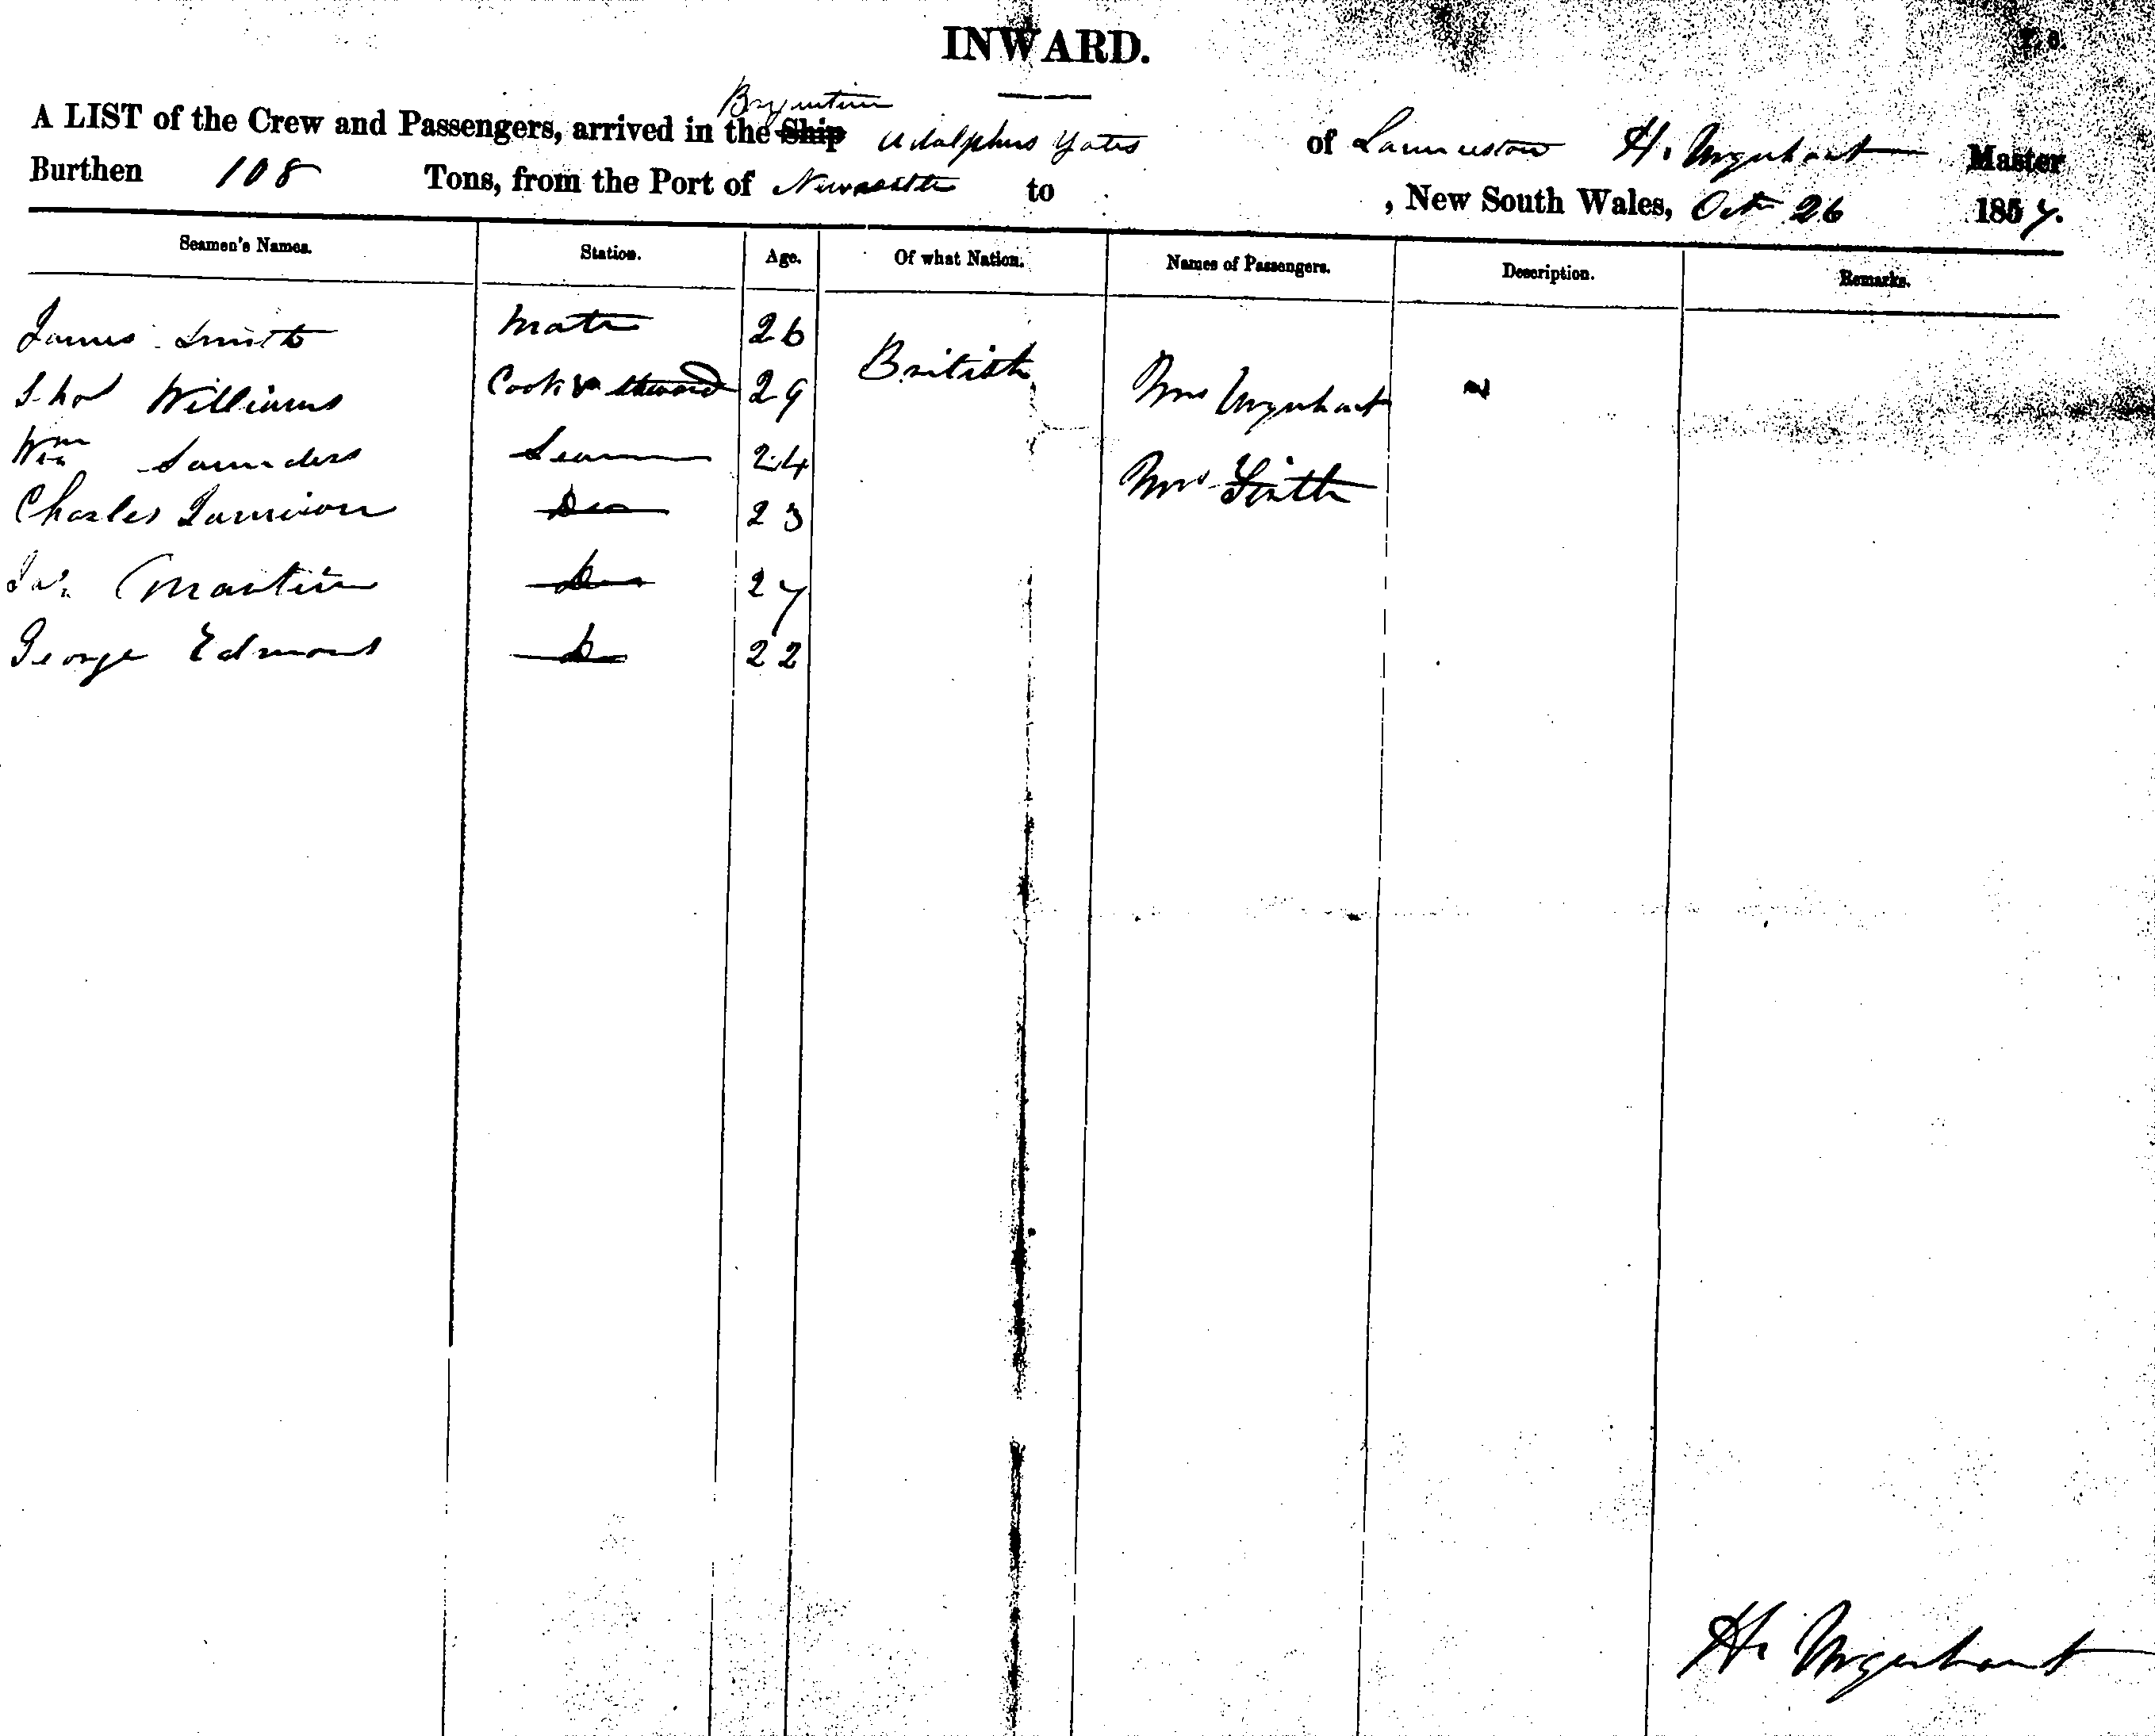 INWARD.
Brigantine
A LIST of the Crew and Passengers, arrived in the Ship Adolphus Yates of Launceston H. Urquhart Master
Burthen 108 Tons, from the Port of Newcastle to , New South Wales, Oct 26 1857.
Seamen's Names. Station. Age. Of what Nation. Names of Passengers. Description. Remarks.
James Smith Mate 26 British
Thos Williams Cook & Steward 29 Mrs Urquhart
Wm Saunders Seaman 24 Mrs
Charles 23
Jas Martin Do 27
George Edmond Do 22
H. Urquhart